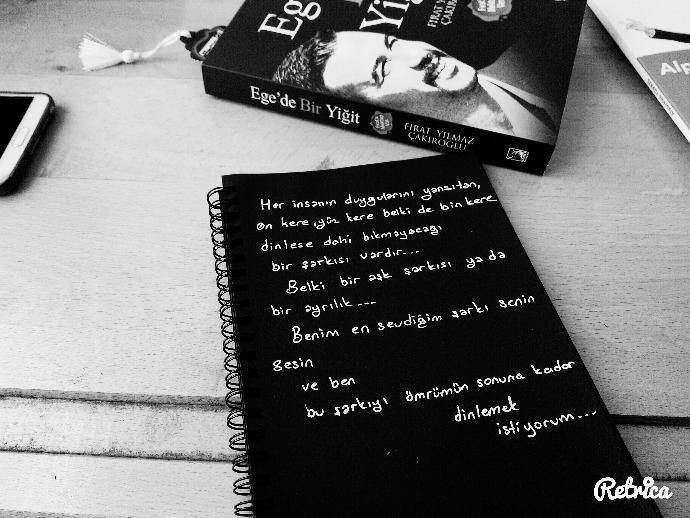 Ege'de Bir Yiğit
FIRAT YILMAZ
ÇAKIROĞLU
Alp
Her insanın duygularını yansıtan,
on kere, yüz kere belki de bin kere
dinlese dahi bıkmayacağı
bir şarkısı vardır...
Belki bir aşk şarkısı ya da
bir ayrılık...
Benim en sevdiğim şarkı senin
sesin
ve ben
bu şarkıyı ömrümün sonuna kadar
dinlemek
istiyorum...
Retrica